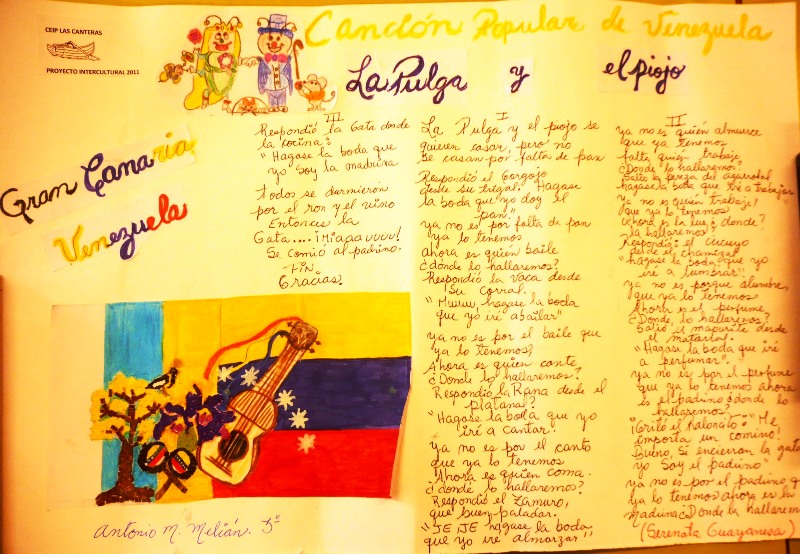 CEIP LAS CANTERAS
PROYECTO INTERCULTURAL 2011
Canción Popular de Venezuela
La Pulga y el piojo
Gran Canaria
Venezuela
I
La Pulga y el piojo se
quieren casar, pero no
se casan por falta de pan
Respondió el Gorgojo
desde su trigal: Hagase
la boda que yo doy el
pan"
ya no es por falta de pan
ya lo tenemos
ahora es quién baile
¿donde lo hallaremos?
Respondió la Vaca desde
su corral.
"Muuu, hagase la boda
que yo iré abailar"
ya no es por el baile que
ya lo tenemos?
Ahora es quien cante
¿Donde lo hallaremos?
Respondió la Rana desde el
platanal?
"Hagase la boda que yo
iré a cantar.
Ya no es por el canto
que ya lo tenemos
Ahora es quien coma.
¿donde lo hallaremos?
Respondió el Zamuro,
que buen paladar.
"JE, JE hagase la boda
que yo iré almorzar"
II
ya no es quién almuerce
que ya tenemos
falta quién trabaje
¿Donde lo hallaremos?
Salto la pereza del
hagase la boda que iré a trabajar
Ya no es quién trabaje!
que ya lo tenemos
Ahora es la luz ¿donde?
la hallaremos?
Respondió: el cucuyo
desde el chamizal
"hagase la boda que yo
iré a lumbrar"
ya no es porque alumbre,
que ya lo tenemos
Ahora es el perfume,
¿Donde lo hallaremos?
Salió el mapurite desde
el matorral.
"Hagase la boda que iré
a perfumar".
ya no es por el perfume
que ya lo tenemos ahora
es el padrino ¿donde lo
hallaremos?
¡Gritó el
"Me
importa un comino!
Bueno, Si encierran la gata
yo Soy el padrino"
ya no es por el padrino q
ya lo tenemos ahora es la
Madrina ¿Donde la hallarem
(Serenata Guayanesa)
III
Respondió la Gata desde
la cocina:
"Hagase la boda que
yo Soy la madrina
todos se durmieron
por el ron y el vino
Entonces la
Gata.... ¡Miaaauuuu!
Se comió al padrino.
-FIN-
Gracias.
Antonio M. Melián. 5º